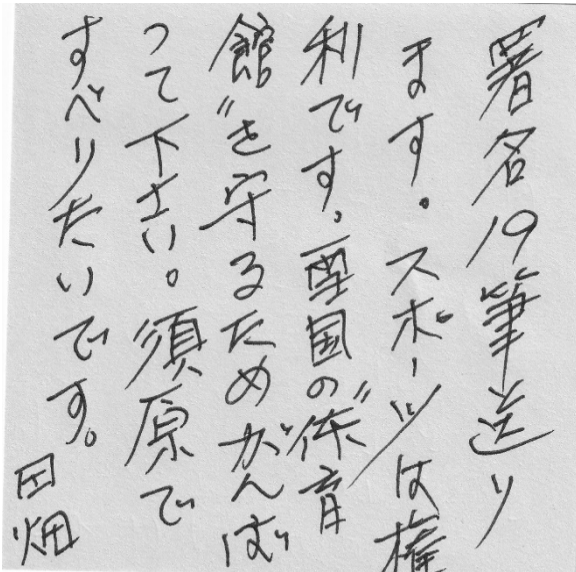 署名19筆送り
ます。スポーツは権
利です。雪国の“体育
館”を守るためがんば
って下さい。須原で
すべりたいです。
田畑